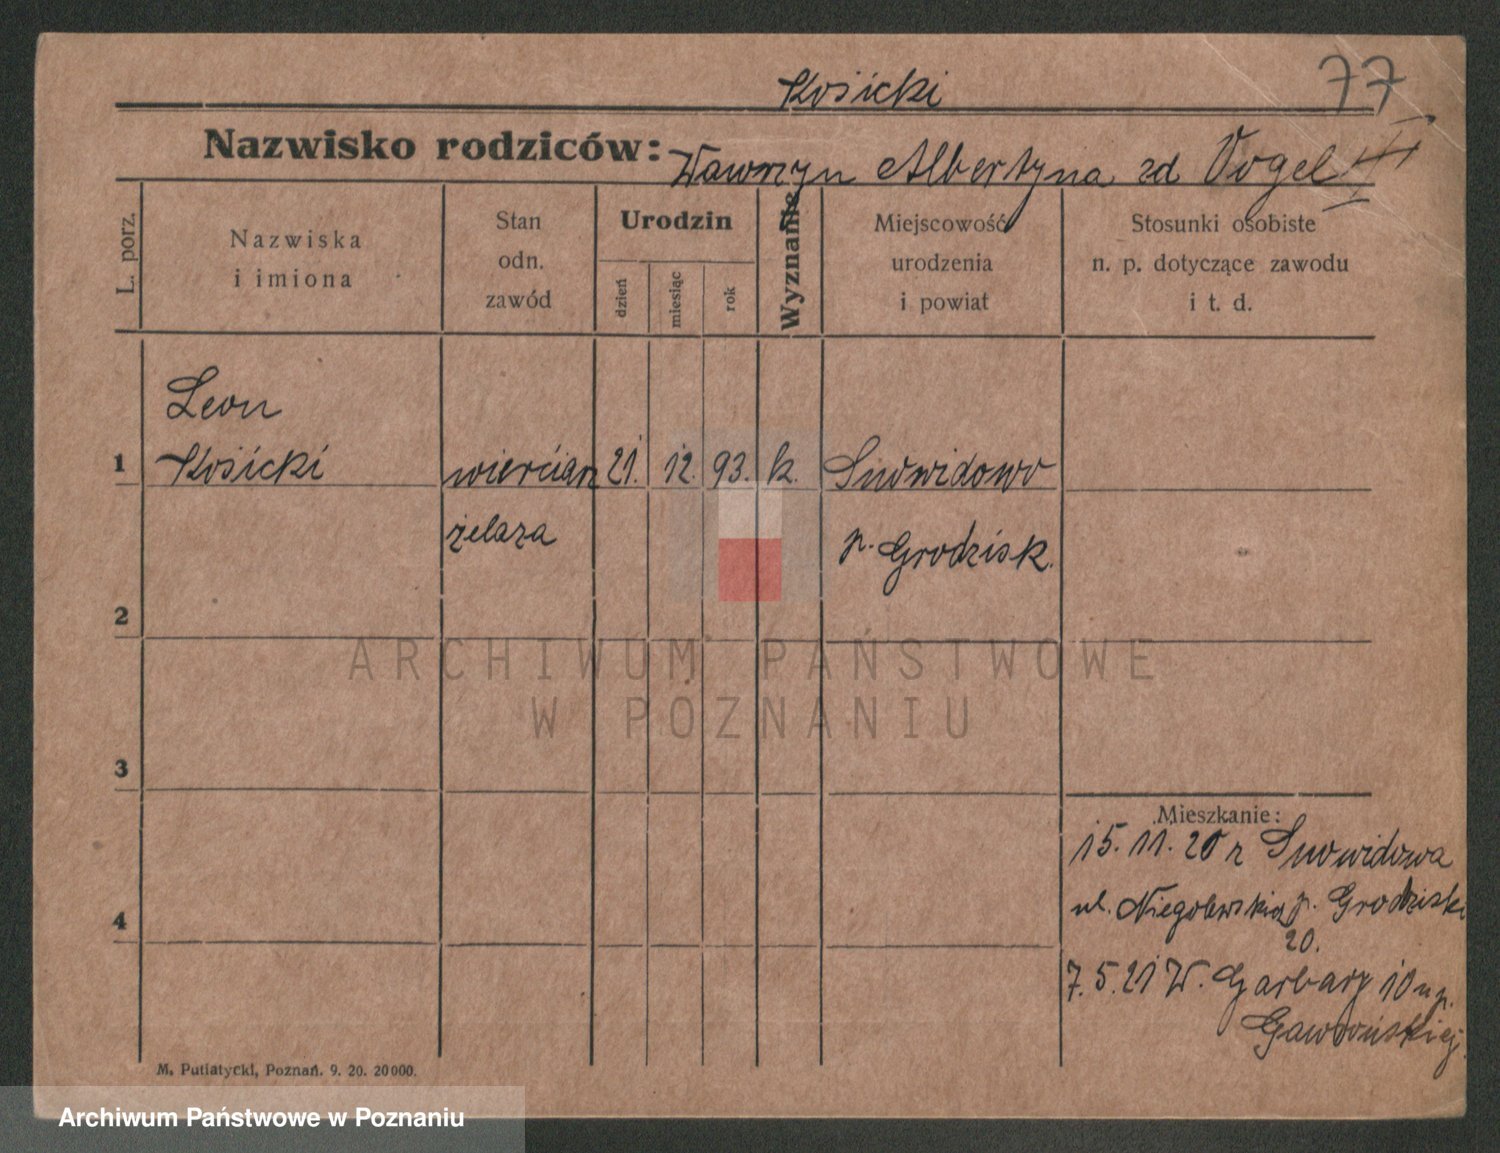 Kosicki
77
Nazwisko rodziców: Wawrzyn Albertyna zd Vogel
III
L. porz.
Nazwiska
i imiona
Stan
odn.
zawód
Urodzin
dzień
miesiąc
rok
Wyznanie
Miejscowość
urodzenia
i powiat
Stosunki osobiste
n. p. dotyczące zawodu
i t. d.
Leon
1 Kosicki wierciarz 21. 12. 93. k. Snowidowo
żelaza p. Grodzisk.
2
3
4
Mieszkanie:
15.11.20 r Snowidowa
ul. Niegolewskich p. Grodzisk
20.
7.5.21 W. Garbary 10 u p.
Gaworskiej
M. Putiatycki, Poznań. 9. 20. 20000.
ARCHIWUM PAŃSTWOWE
W POZNANIU
Archiwum Państwowe w Poznaniu